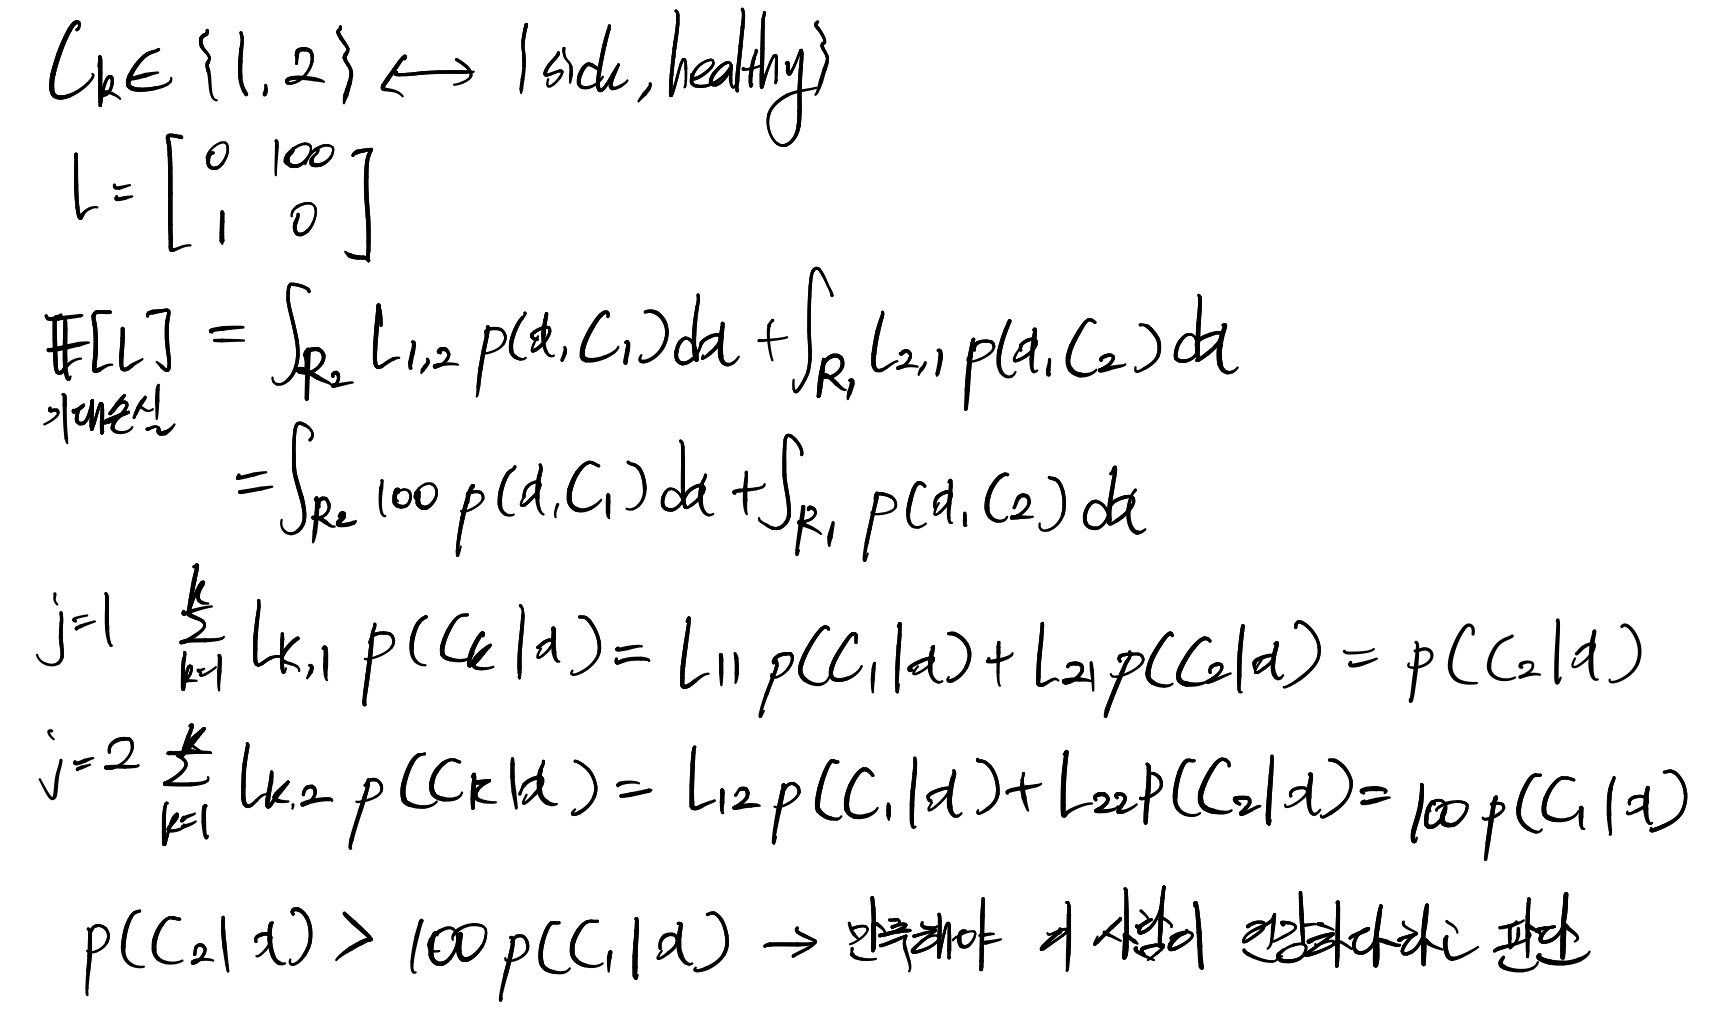 C_k ∈ {1, 2} ↔ {sick, healthy}
L = [0 100
1 0]
𝔼[L] = ∫_{R_2} L_{1,2} p(x, C_1)dx + ∫_{R_1} L_{2,1} p(x, C_2)dx
기대손실
= ∫_{R_2} 100 p(x, C_1)dx + ∫_{R_1} p(x, C_2)dx
j=1 Σ_{k=1}^{K} L_{k,1} p(C_k|x) = L_{11} p(C_1|x) + L_{21} p(C_2|x) = p(C_2|x)
j=2 Σ_{k=1}^{K} L_{k,2} p(C_k|x) = L_{12} p(C_1|x) + L_{22} p(C_2|x) = 100 p(C_1|x)
p(C_2|x) > 100 p(C_1|x) → 만족해야 이 사람이 건강하다라고 판단